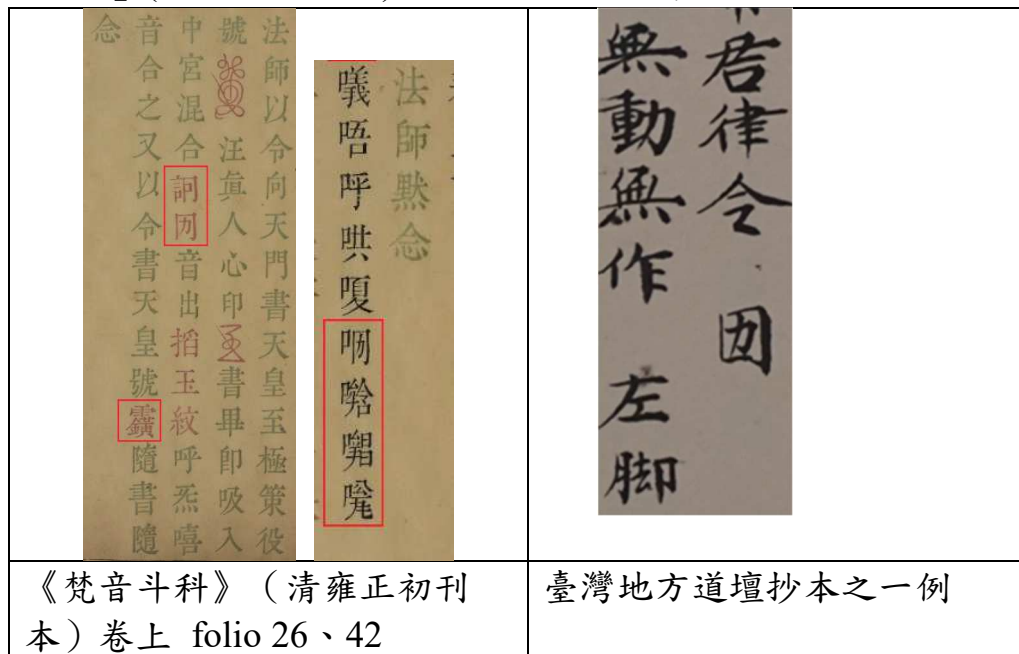 法師以令向天門書天皇至極策役
號 汪真人心印 書畢即吸入
中宮混合㘞音出搯玉紋呼炁嘻
音合之又以令書天皇號 隨書隨
念
法師默念
唔呼哄嗄
君律令 㘞
無動無作 左脚
《梵音斗科》(清雍正初刊
本)卷上 folio 26、42
臺灣地方道壇抄本之一例